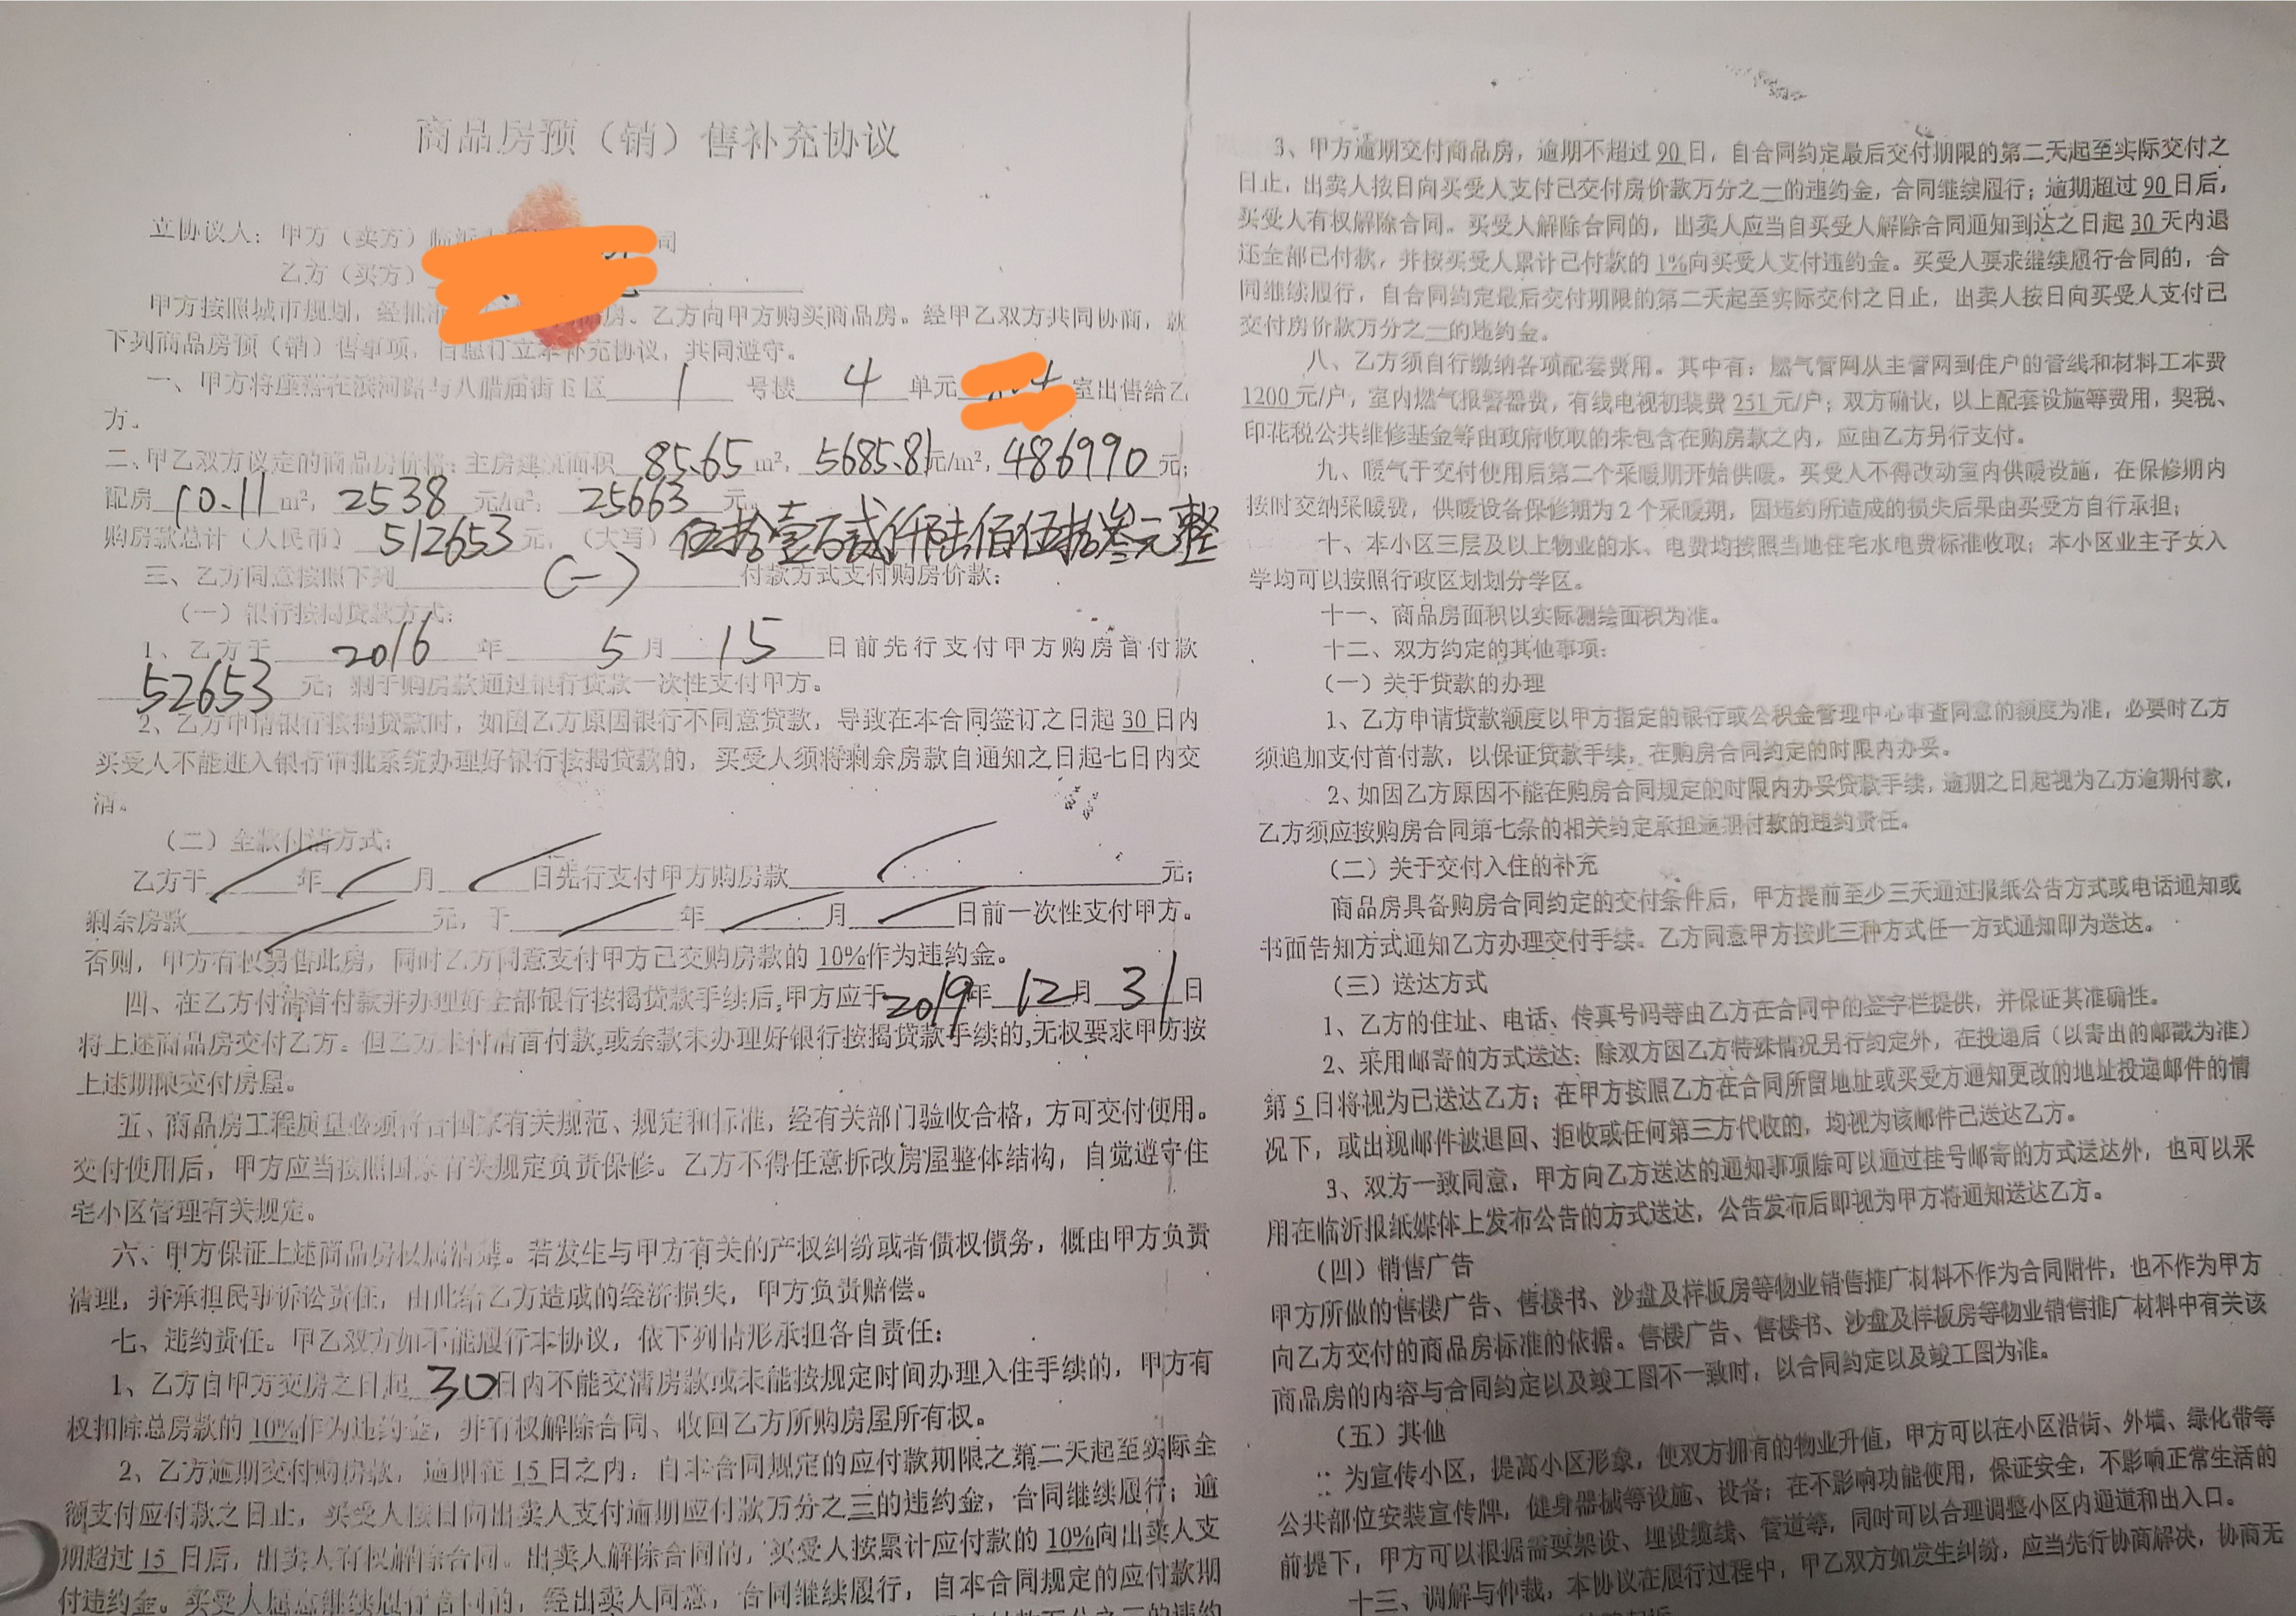 商品房预（销）售补充协议
立协议人：甲方（卖方）临沂 司
乙方（买方）
甲方按照城市规划，经批准 房。乙方向甲方购买商品房。经甲乙双方共同协商，就
下列商品房预（销）售事项，自愿订立本补充协议，共同遵守。
一、甲方将座落在滨河路与八腊庙街B区 1 号楼 4 单元 室出售给乙
方。
二、甲乙双方议定的商品房价格：主房建筑面积 85.65 m²，5685.81元/m²，486990 元；
配房 10.11 m²，2538 元/m²，25663 元。
购房款总计（人民币） 512653 元，（大写）伍拾壹万贰仟陆佰伍拾叁元整
三、乙方同意按照下列 (一) 付款方式支付购房价款：
（一）银行按揭贷款方式：
1、乙方于 2016 年 5 月 15 日前先行支付甲方购房首付款
52653 元；剩于购房款通过银行贷款一次性支付甲方。
2、乙方申请银行按揭贷款时，如因乙方原因银行不同意贷款，导致在本合同签订之日起30日内
买受人不能进入银行审批系统办理好银行按揭贷款的，买受人须将剩余房款自通知之日起七日内交
清。
（二）全款付清方式：
乙方于 年 月 日先行支付甲方购房款 元；
剩余房款 元，于 年 月 日前一次性支付甲方。
否则，甲方有权另售此房，同时乙方同意支付甲方已交购房款的 10%作为违约金。
四、在乙方付清首付款并办理好全部银行按揭贷款手续后，甲方应于2019年 12月 31日
将上述商品房交付乙方。但乙方未付清首付款，或余款未办理好银行按揭贷款手续的，无权要求甲方按
上述期限交付房屋。
五、商品房工程质量必须符合国家有关规范、规定和标准，经有关部门验收合格，方可交付使用。
交付使用后，甲方应当按照国家有关规定负责保修。乙方不得任意拆改房屋整体结构，自觉遵守住
宅小区管理有关规定。
六、甲方保证上述商品房权属清楚。若发生与甲方有关的产权纠纷或者债权债务，概由甲方负责
清理，并承担民事诉讼责任，由此给乙方造成的经济损失，甲方负责赔偿。
七、违约责任。甲乙双方如不能履行本协议，依下列情形承担各自责任：
1、乙方自甲方交房之日起 30日内不能交清房款或未能按规定时间办理入住手续的，甲方有
权扣除总房款的 10%作为违约金，并有权解除合同、收回乙方所购房屋所有权。
2、乙方逾期交付购房款，逾期在 15 日之内，自本合同规定的应付款期限之第二天起至实际全
额支付应付款之日止，买受人按日向出卖人支付逾期应付款万分之三的违约金，合同继续履行；逾
期超过 15 日后，出卖人有权解除合同。出卖人解除合同的，买受人按累计应付款的 10%向出卖人支
付违约金。买受人愿意继续履行合同的，经出卖人同意，合同继续履行，自本合同规定的应付款期
3、甲方逾期交付商品房，逾期不超过 90 日，自合同约定最后交付期限的第二天起至实际交付之
日止，出卖人按日向买受人支付已交付房价款万分之一的违约金，合同继续履行；逾期超过 90 日后，
买受人有权解除合同。买受人解除合同的，出卖人应当自买受人解除合同通知到达之日起 30 天内退
还全部已付款，并按买受人累计已付款的 1%向买受人支付违约金。买受人要求继续履行合同的，合
同继续履行，自合同约定最后交付期限的第二天起至实际交付之日止，出卖人按日向买受人支付已
交付房价款万分之一的违约金。
八、乙方须自行缴纳各项配套费用。其中有：燃气管网从主管网到住户的管线和材料工本费
1200 元/户，室内燃气报警器费，有线电视初装费 251 元/户；双方确认，以上配套设施等费用，契税、
印花税公共维修基金等由政府收取的未包含在购房款之内，应由乙方另行支付。
九、暖气于交付使用后第二个采暖期开始供暖。买受人不得改动室内供暖设施，在保修期内
按时交纳采暖费，供暖设备保修期为 2 个采暖期，因违约所造成的损失后果由买受方自行承担；
十、本小区三层及以上物业的水、电费均按照当地住宅水电费标准收取；本小区业主子女入
学均可以按照行政区划划分学区。
十一、商品房面积以实际测绘面积为准。
十二、双方约定的其他事项：
（一）关于贷款的办理
1、乙方申请贷款额度以甲方指定的银行或公积金管理中心审查同意的额度为准，必要时乙方
须追加支付首付款，以保证贷款手续，在购房合同约定的时限内办妥。
2、如因乙方原因不能在购房合同规定的时限内办妥贷款手续，逾期之日起视为乙方逾期付款，
乙方须应按购房合同第七条的相关约定承担逾期付款的违约责任。
（二）关于交付入住的补充
商品房具备购房合同约定的交付条件后，甲方提前至少三天通过报纸公告方式或电话通知或
书面告知方式通知乙方办理交付手续。乙方同意甲方按此三种方式任一方式通知即为送达。
（三）送达方式
1、乙方的住址、电话、传真号码等由乙方在合同中的签字栏提供，并保证其准确性。
2、采用邮寄的方式送达：除双方因乙方特殊情况另行约定外，在投递后（以寄出的邮戳为准）
第 5 日将视为已送达乙方；在甲方按照乙方在合同所留地址或买受方通知更改的地址投递邮件的情
况下，或出现邮件被退回、拒收或任何第三方代收的，均视为该邮件已送达乙方。
3、双方一致同意，甲方向乙方送达的通知事项除可以通过挂号邮寄的方式送达外，也可以采
用在临沂报纸媒体上发布公告的方式送达，公告发布后即视为甲方将通知送达乙方。
（四）销售广告
甲方所做的售楼广告、售楼书、沙盘及样板房等物业销售推广材料不作为合同附件，也不作为甲方
向乙方交付的商品房标准的依据。售楼广告、售楼书、沙盘及样板房等物业销售推广材料中有关该
商品房的内容与合同约定以及竣工图不一致时，以合同约定以及竣工图为准。
（五）其他
为宣传小区，提高小区形象，使双方拥有的物业升值，甲方可以在小区沿街、外墙、绿化带等
公共部位安装宣传牌，健身器械等设施、设备；在不影响功能使用，保证安全，不影响正常生活的
前提下，甲方可以根据需要架设、埋设缆线、管道等，同时可以合理调整小区内通道和出入口。
十三、调解与仲裁，本协议在履行过程中，甲乙双方如发生纠纷，应当先行协商解决，协商无